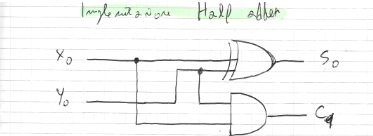 Implementazione Half adder
X0
S0
Y0
C1